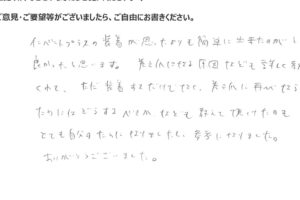 ご意見・ご要望等がございましたら、ご自由にお書きください。
インベルトプラスの装着が思ったよりも簡単に出来たのが
良かったと思います。巻き爪になる原因なども教えて
くれて、ただ装着するだけでなく、巻き爪に再びならない
ためにはどうするべきかなども教えて頂けたのも
とても自分のためになりましたし、参考になりました。
ありがとうございました。